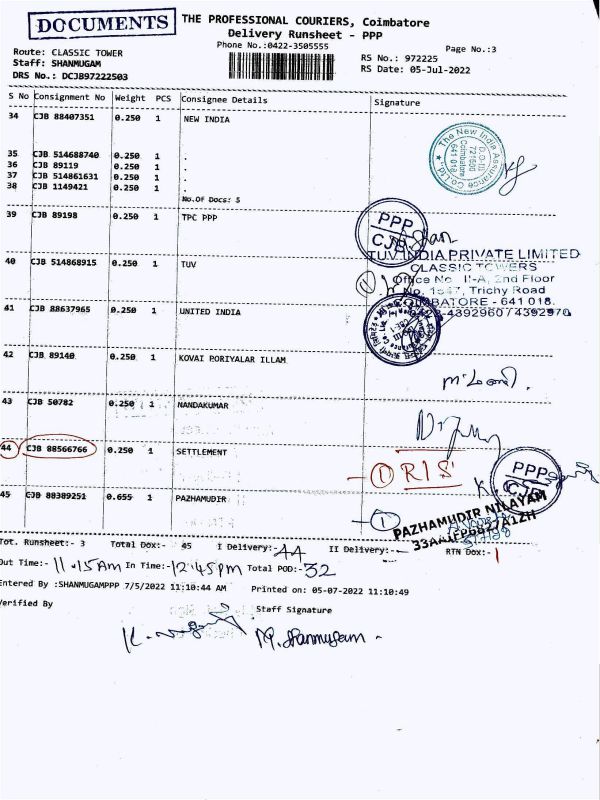 DOCUMENTS
THE PROFESSIONAL COURIERS, Coimbatore
Delivery Runsheet - PPP
Phone No.:0422-3505555
Page No.:3
Route: CLASSIC TOWER
Staff: SHANMUGAM
DRS No.: DCJB97222503
RS No.: 972225
RS Date: 05-Jul-2022
S No Consignment No Weight PCS Consignee Details Signature
34 CJB 88407351 0.250 1 NEW INDIA
The New India Assurance Co. Ltd.
D.O-III
721600
Coimbatore
641 018
35 CJB 514688740 0.250 1 .
36 CJB 89119 0.250 1 .
37 CJB 514861631 0.250 1 .
38 CJB 1149421 0.250 1 .
No.Of Docs: 5
39 CJB 89198 0.250 1 TPC PPP
PPP
CJB
40 CJB 514868915 0.250 1 TUV
TUV INDIA PRIVATE LIMITED
CLASSIC TOWERS
Office No. II-A, 2nd Floor
No. 1547, Trichy Road
COIMBATORE - 641 018.
-4392960 / 4392970
41 CJB 88637965 0.250 1 UNITED INDIA
42 CJB 89140 0.250 1 KOVAI PORIYALAR ILLAM
43 CJB 50782 0.250 1 NANDAKUMAR
44 CJB 88566766 0.250 1 SETTLEMENT
- 1 RTS
PPP
CJB
45 CJB 88389251 0.655 1 PAZHAMUDIR
- 1
PAZHAMUDIR NILAYAM
Tot. Runsheet:- 3 Total Dox:- 45 I Delivery:- 44 II Delivery:- RTN Dox:- 1
Out Time:- 11.15Am In Time:- 12.45pm Total POD:- 32
Entered By :SHANMUGAMPPP 7/5/2022 11:10:44 AM Printed on: 05-07-2022 11:10:49
Verified By Staff Signature
M. Shanmugam